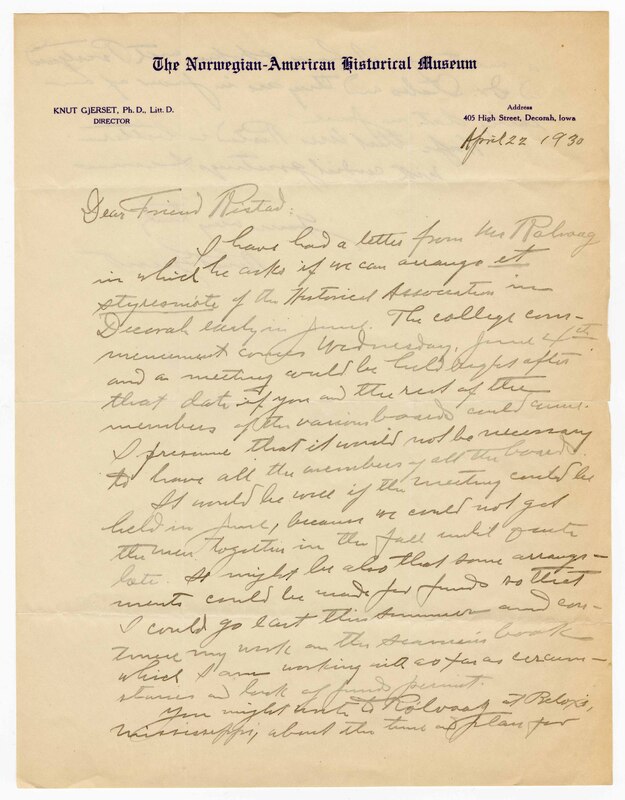 The Norwegian-American Historical Museum
KNUT GJERSET, Ph. D., Litt. D.
DIRECTOR
Address
405 High Street, Decorah, Iowa
April 22 1930
Dear Friend Ristad:
I have had a letter from Mr Rolvaag
in which he asks if we can arrange et
styresmøte of the Historical Association in
Decorah early in June. The college com-
mencement comes Wednesday, June 4th
and a meeting could be held right after
that date if you and the rest of the
members of the various boards could come.
I presume that it would not be necessary
to have all the members of all the boards.
It would be well if the meeting could be
held in June, because we could not get
the men together in the fall until quite
late. It might be also that some arrange-
ments could be made for funds so that
I could go east this summer and con-
tinue my work on the seamen's book
which I am working with as far as circum-
stances and lack of funds permit.
You might write to Rölvaag at Biloxi,
Mississippi, about the time and plan for